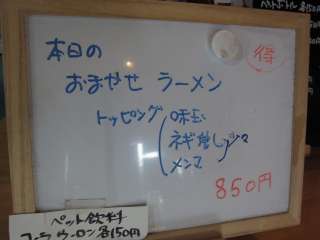 ペットボトル 各150円
得
本日の
おまかせ ラーメン
トッピング
味玉
ネギ増し
メンマ
850円
ペット飲料
コーラ ウーロン 各150円